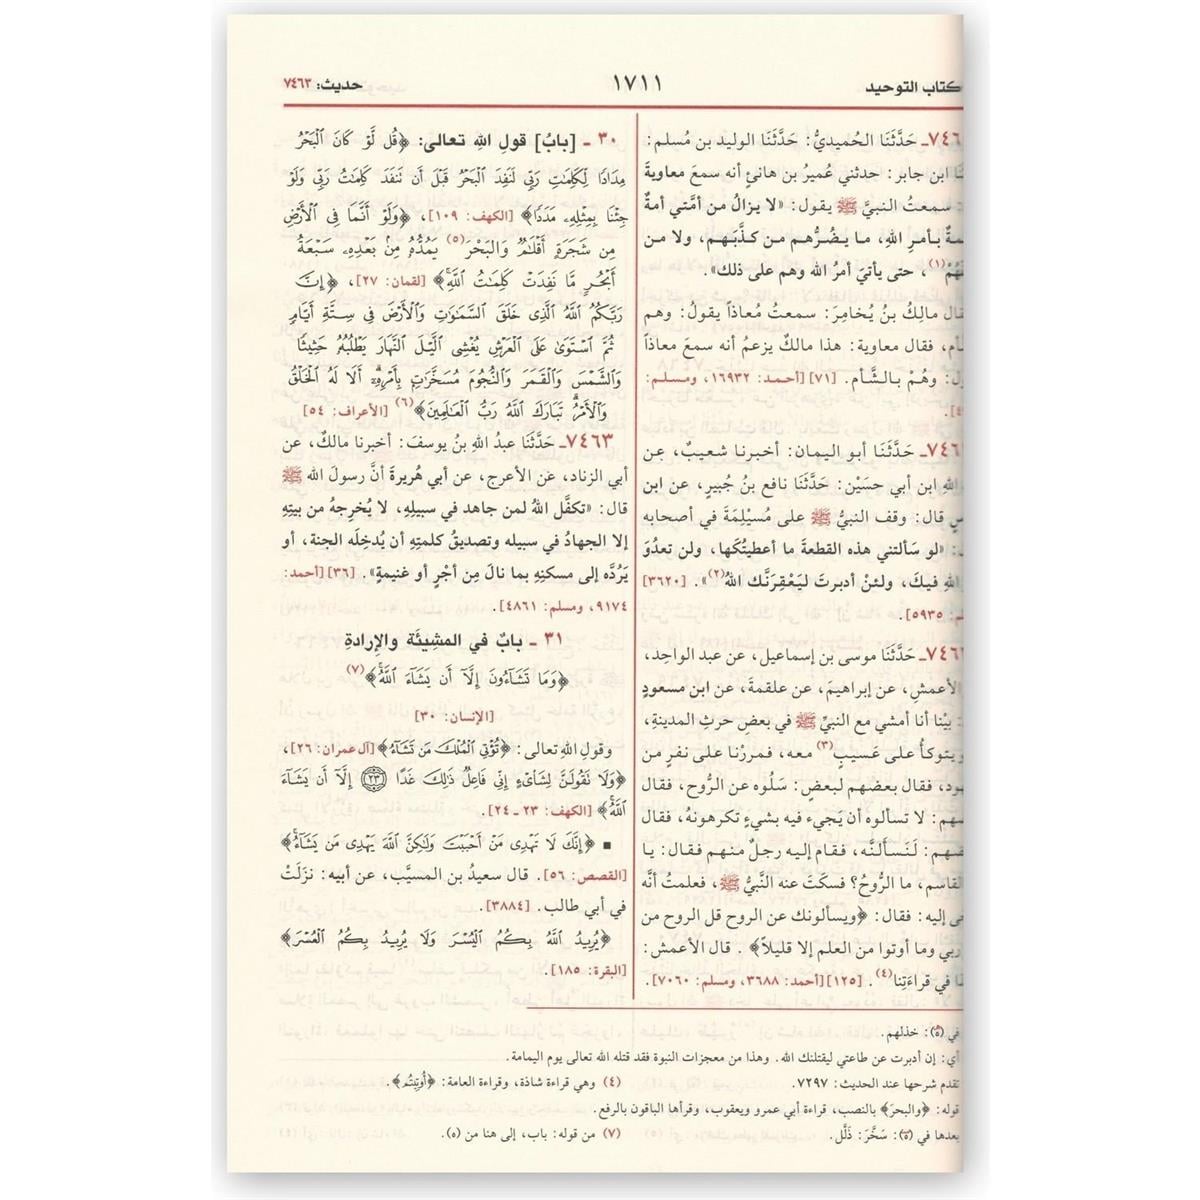 كتاب التوحيد
١٧١١
حديث: ٧٤٦٣
حَدَّثَنَا الحُميديُّ: حَدَّثَنَا الوليد بن مُسلم:
ابن جابر: حدثني عُميرُ بن هانئٍ أنه سمعَ معاويةَ
سمعتُ النبيَّ ﷺ يقول: «لا يزالُ من أمَّتي أمةٌ
بأمرِ اللهِ، ما يَضُرُّهم من كذَّبَهم، ولا من
(١)، حتى يأتيَ أمرُ الله وهم على ذلك».
مالكُ بنُ يُخامِرَ: سمعتُ مُعاذاً يقولُ: وهم
فقال معاوية: هذا مالكٌ يزعمُ أنه سمعَ معاذاً
وهُمْ بالشَّأم. [٧١] [أحمد: ١٦٩٣٢، ومسلم:
حَدَّثَنَا أبو اليمان: أخبرنا شعيبٌ، عن
ابن أبي حسَيْن: حَدَّثَنَا نافع بنُ جُبيرٍ، عن ابن
قال: وقف النبيُّ ﷺ على مُسَيْلِمَةَ في أصحابه
«لو سَألتني هذه القطعةَ ما أعطيتُكَها، ولن تعدُوَ
فيكَ، ولئنْ أدبرتَ ليَعْقِرَنَّك اللهُ(٢)». [٣٦٢٠]
٥٩٣٥].
حَدَّثَنَا موسى بن إسماعيل، عن عبد الواحد،
الأعمشِ، عن إبراهيمَ، عن علقمةَ، عن ابن مسعودٍ
بيْنا أنا أمشي مع النبيِّ ﷺ في بعضِ حرثِ المدينةِ،
يتوكأُ على عَسيبٍ(٣) معه، فمررْنا على نفرٍ من
فقال بعضهم لبعضٍ: سَلُوه عن الرُّوح، فقال
لا تسألوه أن يَجيءَ فيه بشيءٍ تكرهونهُ، فقال
لَنَسأَلنَّه، فقام إليه رجلٌ منهم فقال: يا
القاسم، ما الرُّوحُ؟ فسكتَ عنه النَّبيُّ ﷺ، فعلمتُ أنَّه
إليه: فقال: ﴿ويسألونك عن الروح قل الروح من
ربي وما أوتوا من العلم إلا قليلاً﴾. قال الأعمش:
في قراءَتِنا(٤). [١٢٥] [أحمد: ٣٦٨٨، ومسلم: ٧٠٦٠].
٣٠ - [بابُ] قولِ اللهِ تعالى: ﴿قُل لَّوْ كَانَ ٱلْبَحْرُ
مِدَادًا لِّكَلِمَٰتِ رَبِّى لَنَفِدَ ٱلْبَحْرُ قَبْلَ أَن تَنفَدَ كَلِمَٰتُ رَبِّى وَلَوْ
جِئْنَا بِمِثْلِهِۦ مَدَدًا﴾ [الكهف: ١٠٩]، ﴿وَلَوْ أَنَّمَا فِى ٱلْأَرْضِ
مِن شَجَرَةٍ أَقْلَٰمٌ وَٱلْبَحْرَ(٥) يَمُدُّهُۥ مِنۢ بَعْدِهِۦ سَبْعَةُ
أَبْحُرٍ مَّا نَفِدَتْ كَلِمَٰتُ ٱللَّهِ﴾ [لقمان: ٢٧]، ﴿إِنَّ
رَبَّكُمُ ٱللَّهُ ٱلَّذِى خَلَقَ ٱلسَّمَٰوَٰتِ وَٱلْأَرْضَ فِى سِتَّةِ أَيَّامٍ
ثُمَّ ٱسْتَوَىٰ عَلَى ٱلْعَرْشِ يُغْشِى ٱلَّيْلَ ٱلنَّهَارَ يَطْلُبُهُۥ حَثِيثًا
وَٱلشَّمْسَ وَٱلْقَمَرَ وَٱلنُّجُومَ مُسَخَّرَٰتٍۭ بِأَمْرِهِۦٓ أَلَا لَهُ ٱلْخَلْقُ
وَٱلْأَمْرُ تَبَارَكَ ٱللَّهُ رَبُّ ٱلْعَٰلَمِينَ﴾(٦) [الأعراف: ٥٤]
٧٤٦٣ـ حَدَّثَنَا عبدُ اللهِ بنُ يوسفَ: أخبرنا مالكٌ، عن
أبي الزناد، عَنِ الأعرجِ، عن أبي هُريرةَ أنَّ رسولَ الله ﷺ
قال: «تكفَّل اللهُ لمن جاهد في سبيلِهِ، لا يُخرِجهُ من بيتِهِ
إلا الجهادُ في سبيله وتصديقُ كلمتِهِ أن يُدخِلَه الجنة، أو
يَرُدَّه إلى مسكنِهِ بما نالَ مِن أجْرٍ أو غنيمةٍ». [٣٦] [أحمد:
٩١٧٤، ومسلم: ٤٨٦١].
٣١ - بابٌ في المشيئَةِ والإرادةِ
﴿وَمَا تَشَآءُونَ إِلَّآ أَن يَشَآءَ ٱللَّهُ﴾(٧)
[الإنسان: ٣٠]
وقولِ اللهِ تعالى: ﴿تُؤْتِى ٱلْمُلْكَ مَن تَشَآءُ﴾ [آل عمران: ٢٦]،
﴿وَلَا تَقُولَنَّ لِشَاْىْءٍ إِنِّى فَاعِلٌ ذَٰلِكَ غَدًا ٢٣ إِلَّآ أَن يَشَآءَ
ٱللَّهُ﴾ [الكهف: ٢٣ - ٢٤].
▪ ﴿إِنَّكَ لَا تَهْدِى مَنْ أَحْبَبْتَ وَلَٰكِنَّ ٱللَّهَ يَهْدِى مَن يَشَآءُ﴾
[القصص: ٥٦]. قال سعيدُ بن المسيَّب، عن أبيه: نزلَتْ
في أبي طالب. [٣٨٨٤].
﴿يُرِيدُ ٱللَّهُ بِكُمُ ٱلْيُسْرَ وَلَا يُرِيدُ بِكُمُ ٱلْعُسْرَ﴾
[البقرة: ١٨٥].
في (٥): خذلهم.
أي: إن أدبرت عن طاعتي ليقتلنك الله. وهذا من معجزات النبوة فقد قتله الله تعالى يوم اليمامة.
تقدم شرحها عند الحديث: ٧٢٩٧. (٤) وهي قراءة شاذة، وقراءة العامة: ﴿أُوتِيتُم﴾.
قوله: ﴿والبحرَ﴾ بالنصب، قراءة أبي عمرو ويعقوب، وقرأها الباقون بالرفع.
بعدها في (٥): سَخَّرَ: ذَلَّلَ. (٧) من قوله: باب، إلى هنا من (٥).